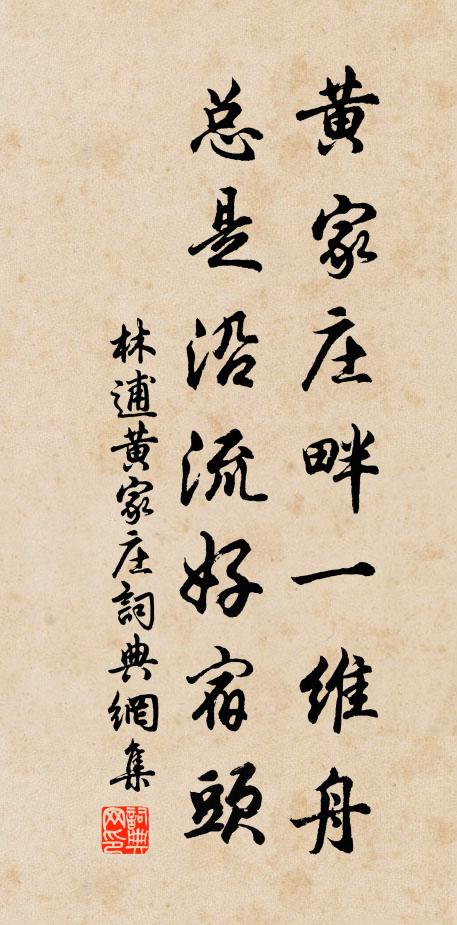 黄家庄畔一维舟
总是沿流好宿頭
林逋黄家庄詞典網集
詞典网印